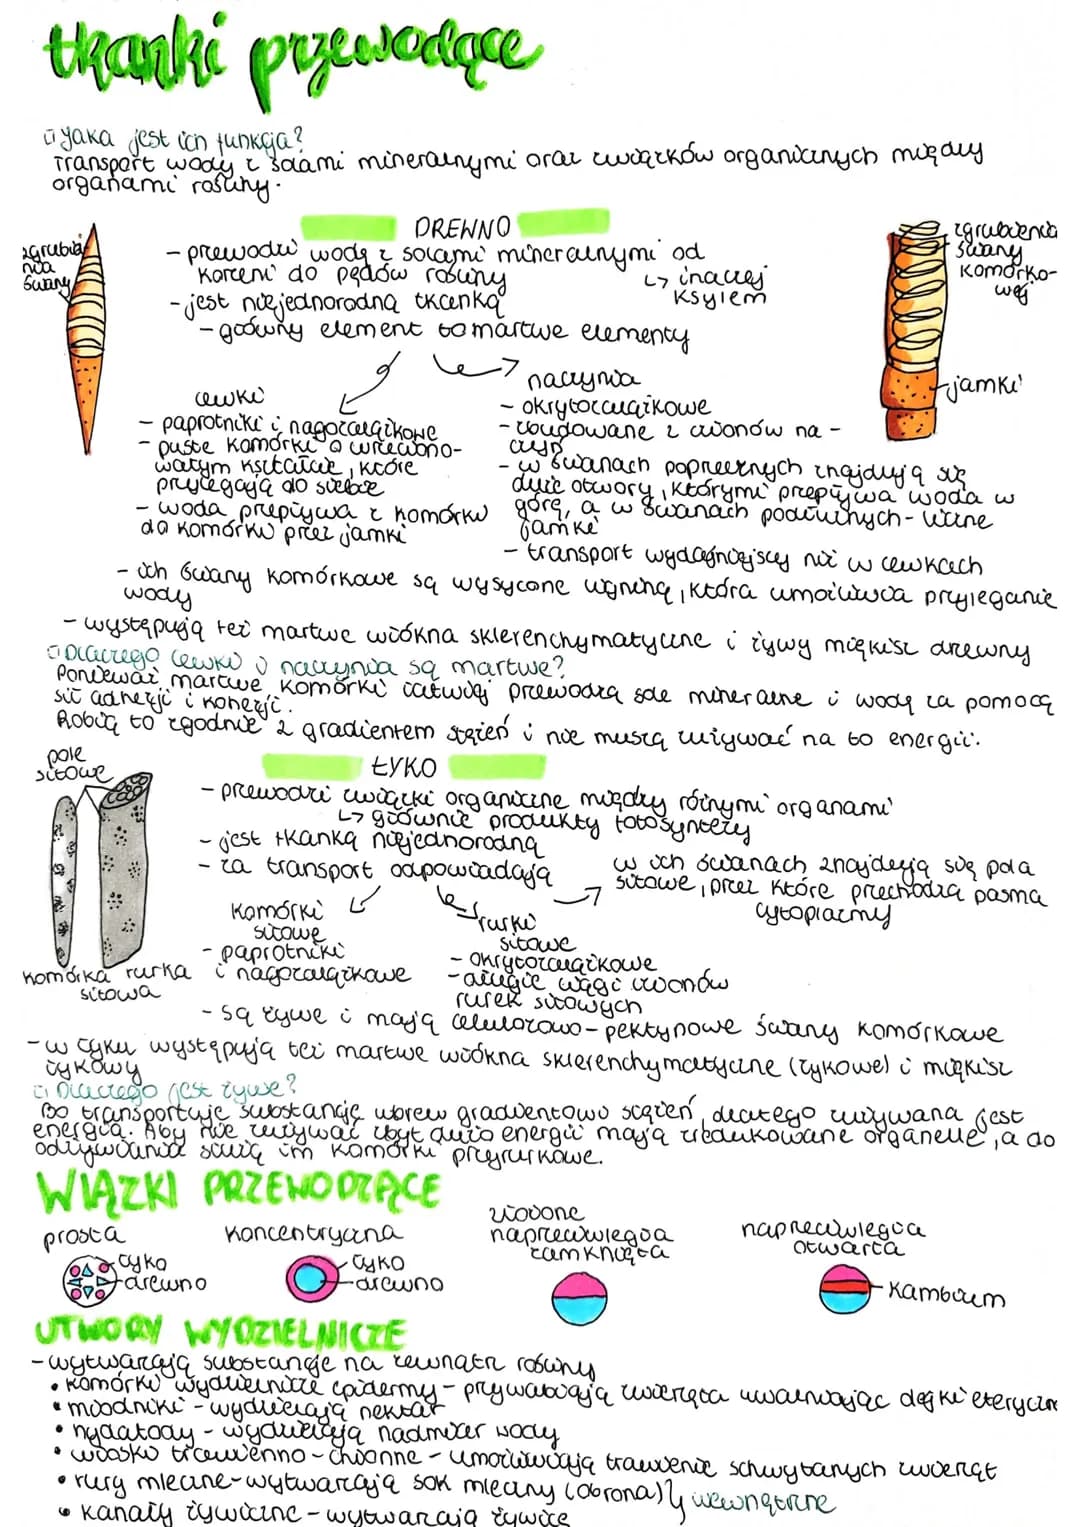 tkanki przewodzące
Jaka jest ich funkcja?
Transport wody z solami mineralnymi oraz związków organicznych między
organami rośliny.
DREWNO
zgrubie
nia
ściany
- przewodzi wodę z solami mineralnymi od
korzeni do pędów rośliny
↳ inaczej
ksylem
- jest niejednorodną tkanką
- główny element to martwe elementy
zgrubienia
ściany
komórko-
wej
jamki
cewki
- paprotniki i nagozalążkowe
- puste komórki o wrzeciono-
watym kształcie, które
przylegają do siebie
- woda przepływa z komórki
do komórki przez jamki
naczynia
- okrytozalążkowe
- zbudowane z członów na-
czyń
- w ścianach poprzecznych znajdują się
duże otwory, którymi przepływa woda w
górę, a w ścianach podłużnych - liczne
jamki
- transport wydajniejszy niż w cewkach
- ich ściany komórkowe są wysycone ligniną, która umożliwia przyleganie
wody
- występują też martwe włókna sklerenchymatyczne i żywy miękisz drzewny
Dlaczego cewki i naczynia są martwe?
Ponieważ martwe komórki łatwiej przewodzą sole mineralne i wodę za pomocą
sił adhezji i kohezji.
Robią to zgodnie z gradientem stężeń i nie muszą zużywać na to energii.
ŁYKO
pole
sitowe
- przewodzi związki organiczne między różnymi organami
↳ głównie produkty fotosyntezy
- jest tkanką niejednorodną
- za transport odpowiadają
w ich ścianach znajdują się pola
sitowe, przez które przechodzą pasma
cytoplazmy
komórki
sitowe
- paprotniki
i nagozalążkowe
rurki
sitowe
- okrytozalążkowe
- długie ciągi członów
rurek sitowych
komórka rurka
sitowa
- są żywe i mają celulozowo-pektynowe ściany komórkowe
- w łyku występują też martwe włókna sklerenchymatyczne (łykowe) i miękisz
łykowy
Dlaczego jest żywe?
Bo transportuje substancje wbrew gradientowi stężeń, dlatego zużywana jest
energia. Aby nie zużywać zbyt dużo energii mają zredukowane organelle, a do
odżywiania służą im komórki przyrurkowe.
WIĄZKI PRZEWODZĄCE
prosta
łyko
drewno
koncentryczna
łyko
drewno
złożone
naprzeciwległa
zamknięta
naprzeciwległa
otwarta
kambium
UTWORY WYDZIELNICZE
- wytwarzają substancje na zewnątrz rośliny
• komórki wydzielnicze epidermy - przywabiają zwierzęta uwalniając olejki eteryczne
• miodniki - wydzielają nektar
• hydatody - wydzielają nadmiar wody
• włoski trawienno-chłonne - umożliwiają trawienie schwytanych zwierząt
• rury mleczne - wytwarzają sok mleczny (obrona)
wewnętrzne
• kanały żywiczne - wytwarzają żywicę